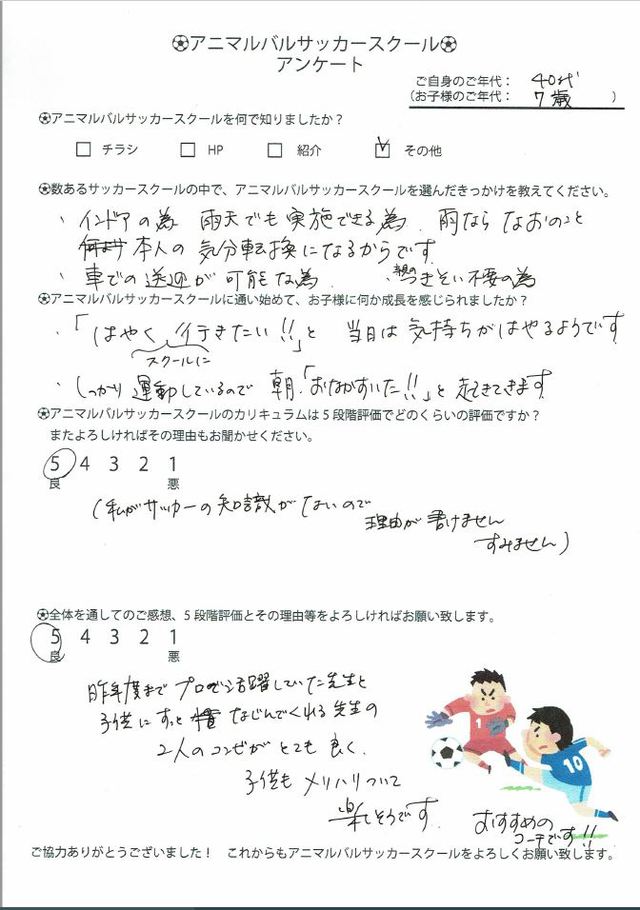 ⚽アニマルバルサッカースクール⚽
アンケート
ご自身のご年代： 40代
(お子様のご年代： 7歳 )
⚽アニマルバルサッカースクールを何で知りましたか？
□ チラシ □ HP □ 紹介 ☑ その他
⚽数あるサッカースクールの中で、アニマルバルサッカースクールを選んだきっかけを教えてください。
・インドアの為 雨天でも実施できる為. 雨なら なおのこと
本人の気分転換になるからです
・車での送迎が可能な為. ・親のつきそい不要の為
⚽アニマルバルサッカースクールに通い始めて、お子様に何か成長を感じられましたか？
・「はやく行きたい!!」と 当日は気持ちがはやるようです
スクールに
・しっかり運動しているので 朝.「おなかすいた!!」と起きてきます
⚽アニマルバルサッカースクールのカリキュラムは５段階評価でどのくらいの評価ですか？
またよろしければその理由もお聞かせください。
5 4 3 2 1
良 悪
(私がサッカーの知識がないので
理由が書けません
すみません)
⚽全体を通してのご感想、５段階評価とその理由等をよろしければお願い致します。
5 4 3 2 1
良 悪
昨年度までプロで活躍していた先生と
子供にずっと なじんでくれる先生の
2人のコンビがとても良く.
子供もメリハリついて
楽しそうです.
おすすめの
コーチです!!
1
10
ご協力ありがとうございました！ これからもアニマルバルサッカースクールをよろしくお願い致します。